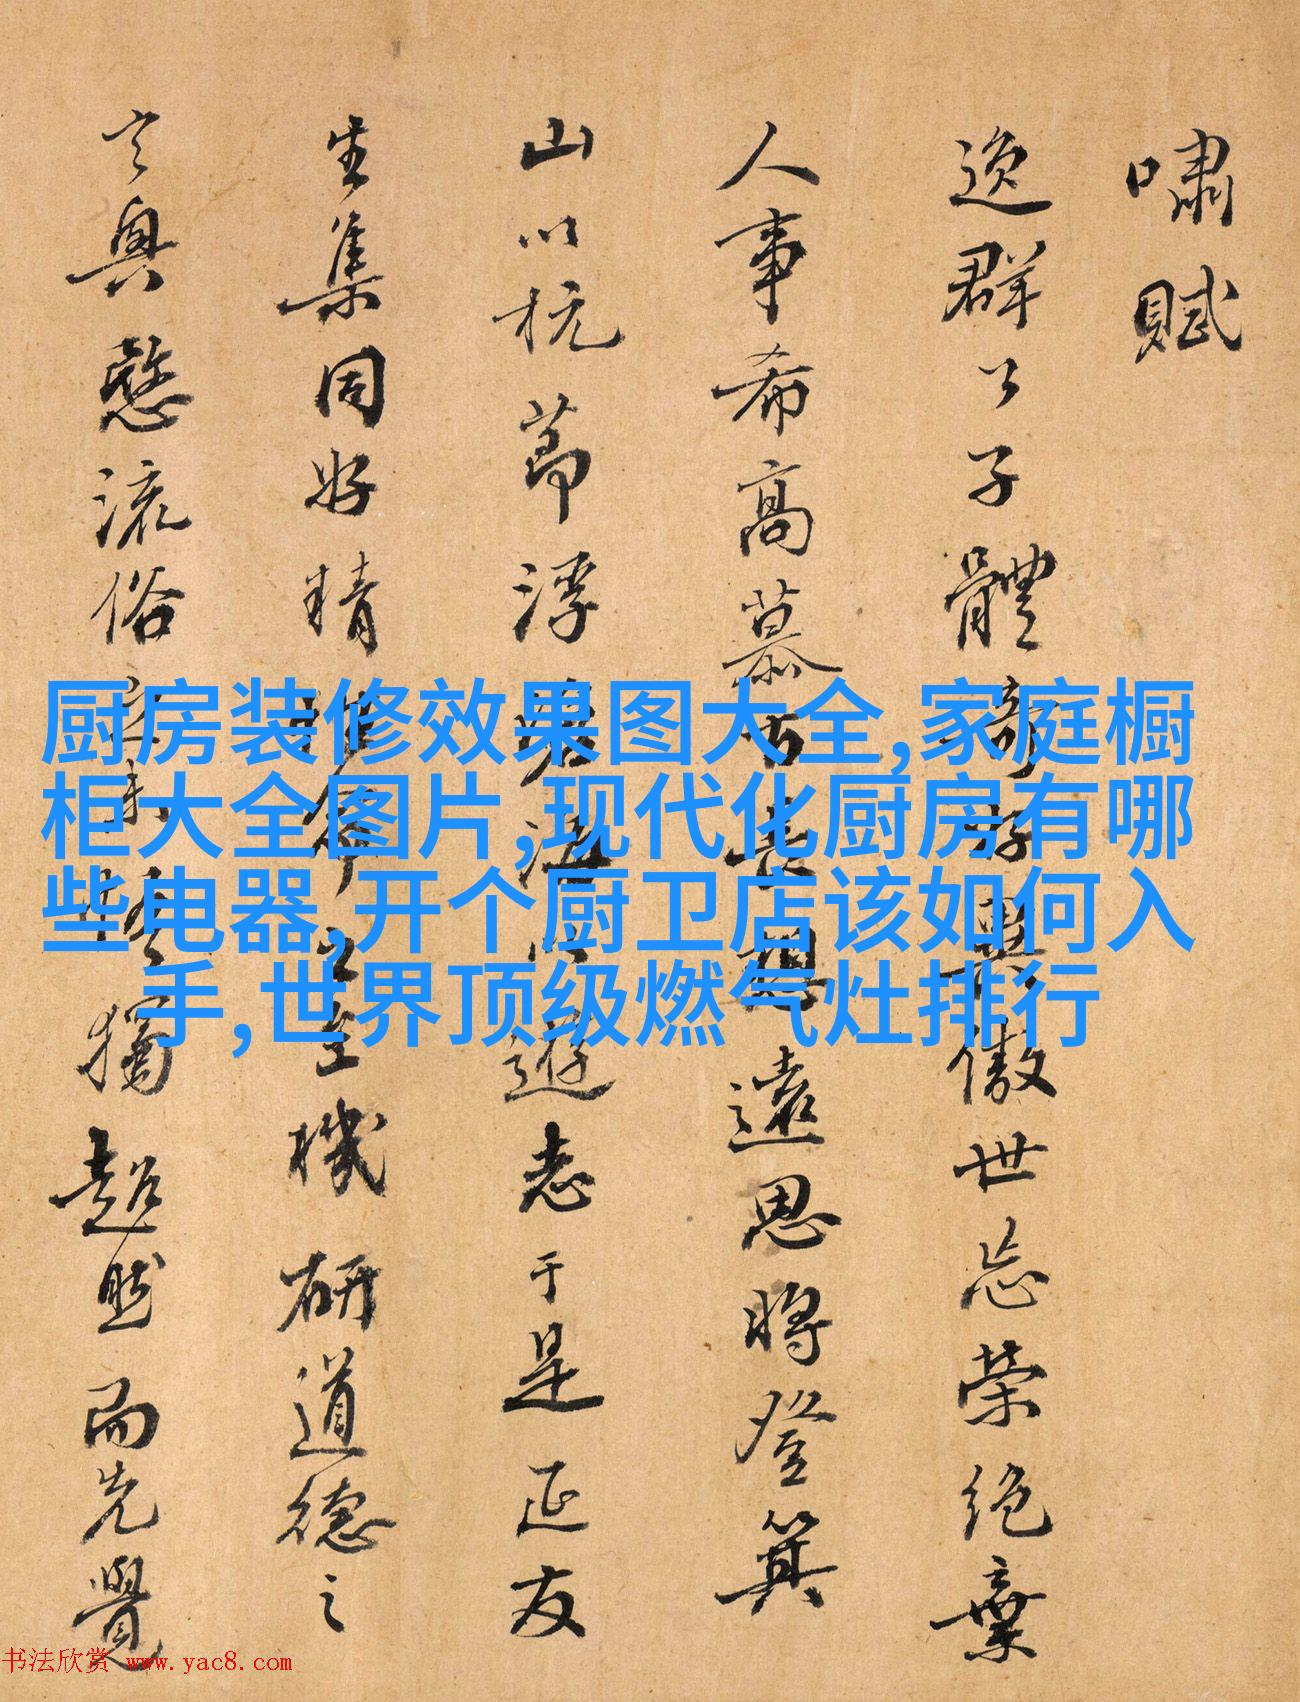 嘯賦
逸群公子體奇好異傲世忘榮絕棄
人事希高慕古長想遠思將登箕
山以抗節浮海以遊志于是延友
生集同好精性命之至機研道德之
玄奧愍流俗之未悟獨超然而先覺
厨房装修效果图大全,家庭橱
柜大全图片,现代化厨房有哪
些电器,开个厨卫店该如何入
手,世界顶级燃气灶排行
书法欣赏 www.yac8.com